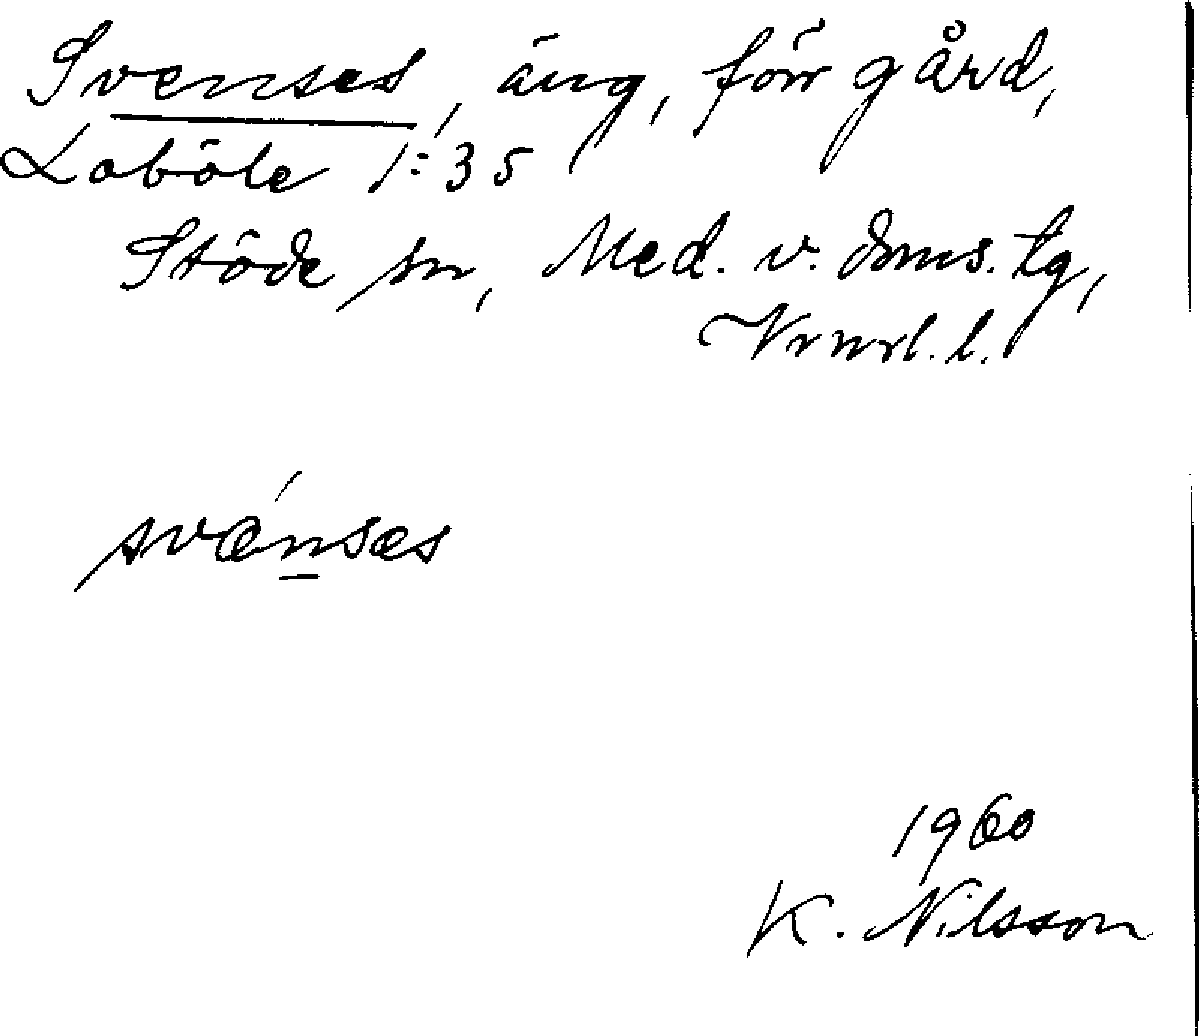 Svenses, äng, förr gård,
Loböle 1:35
Stöde sn, Med. v. doms. tg,
Vrnrl. l.
svænsæs
1960
K. Nilsson